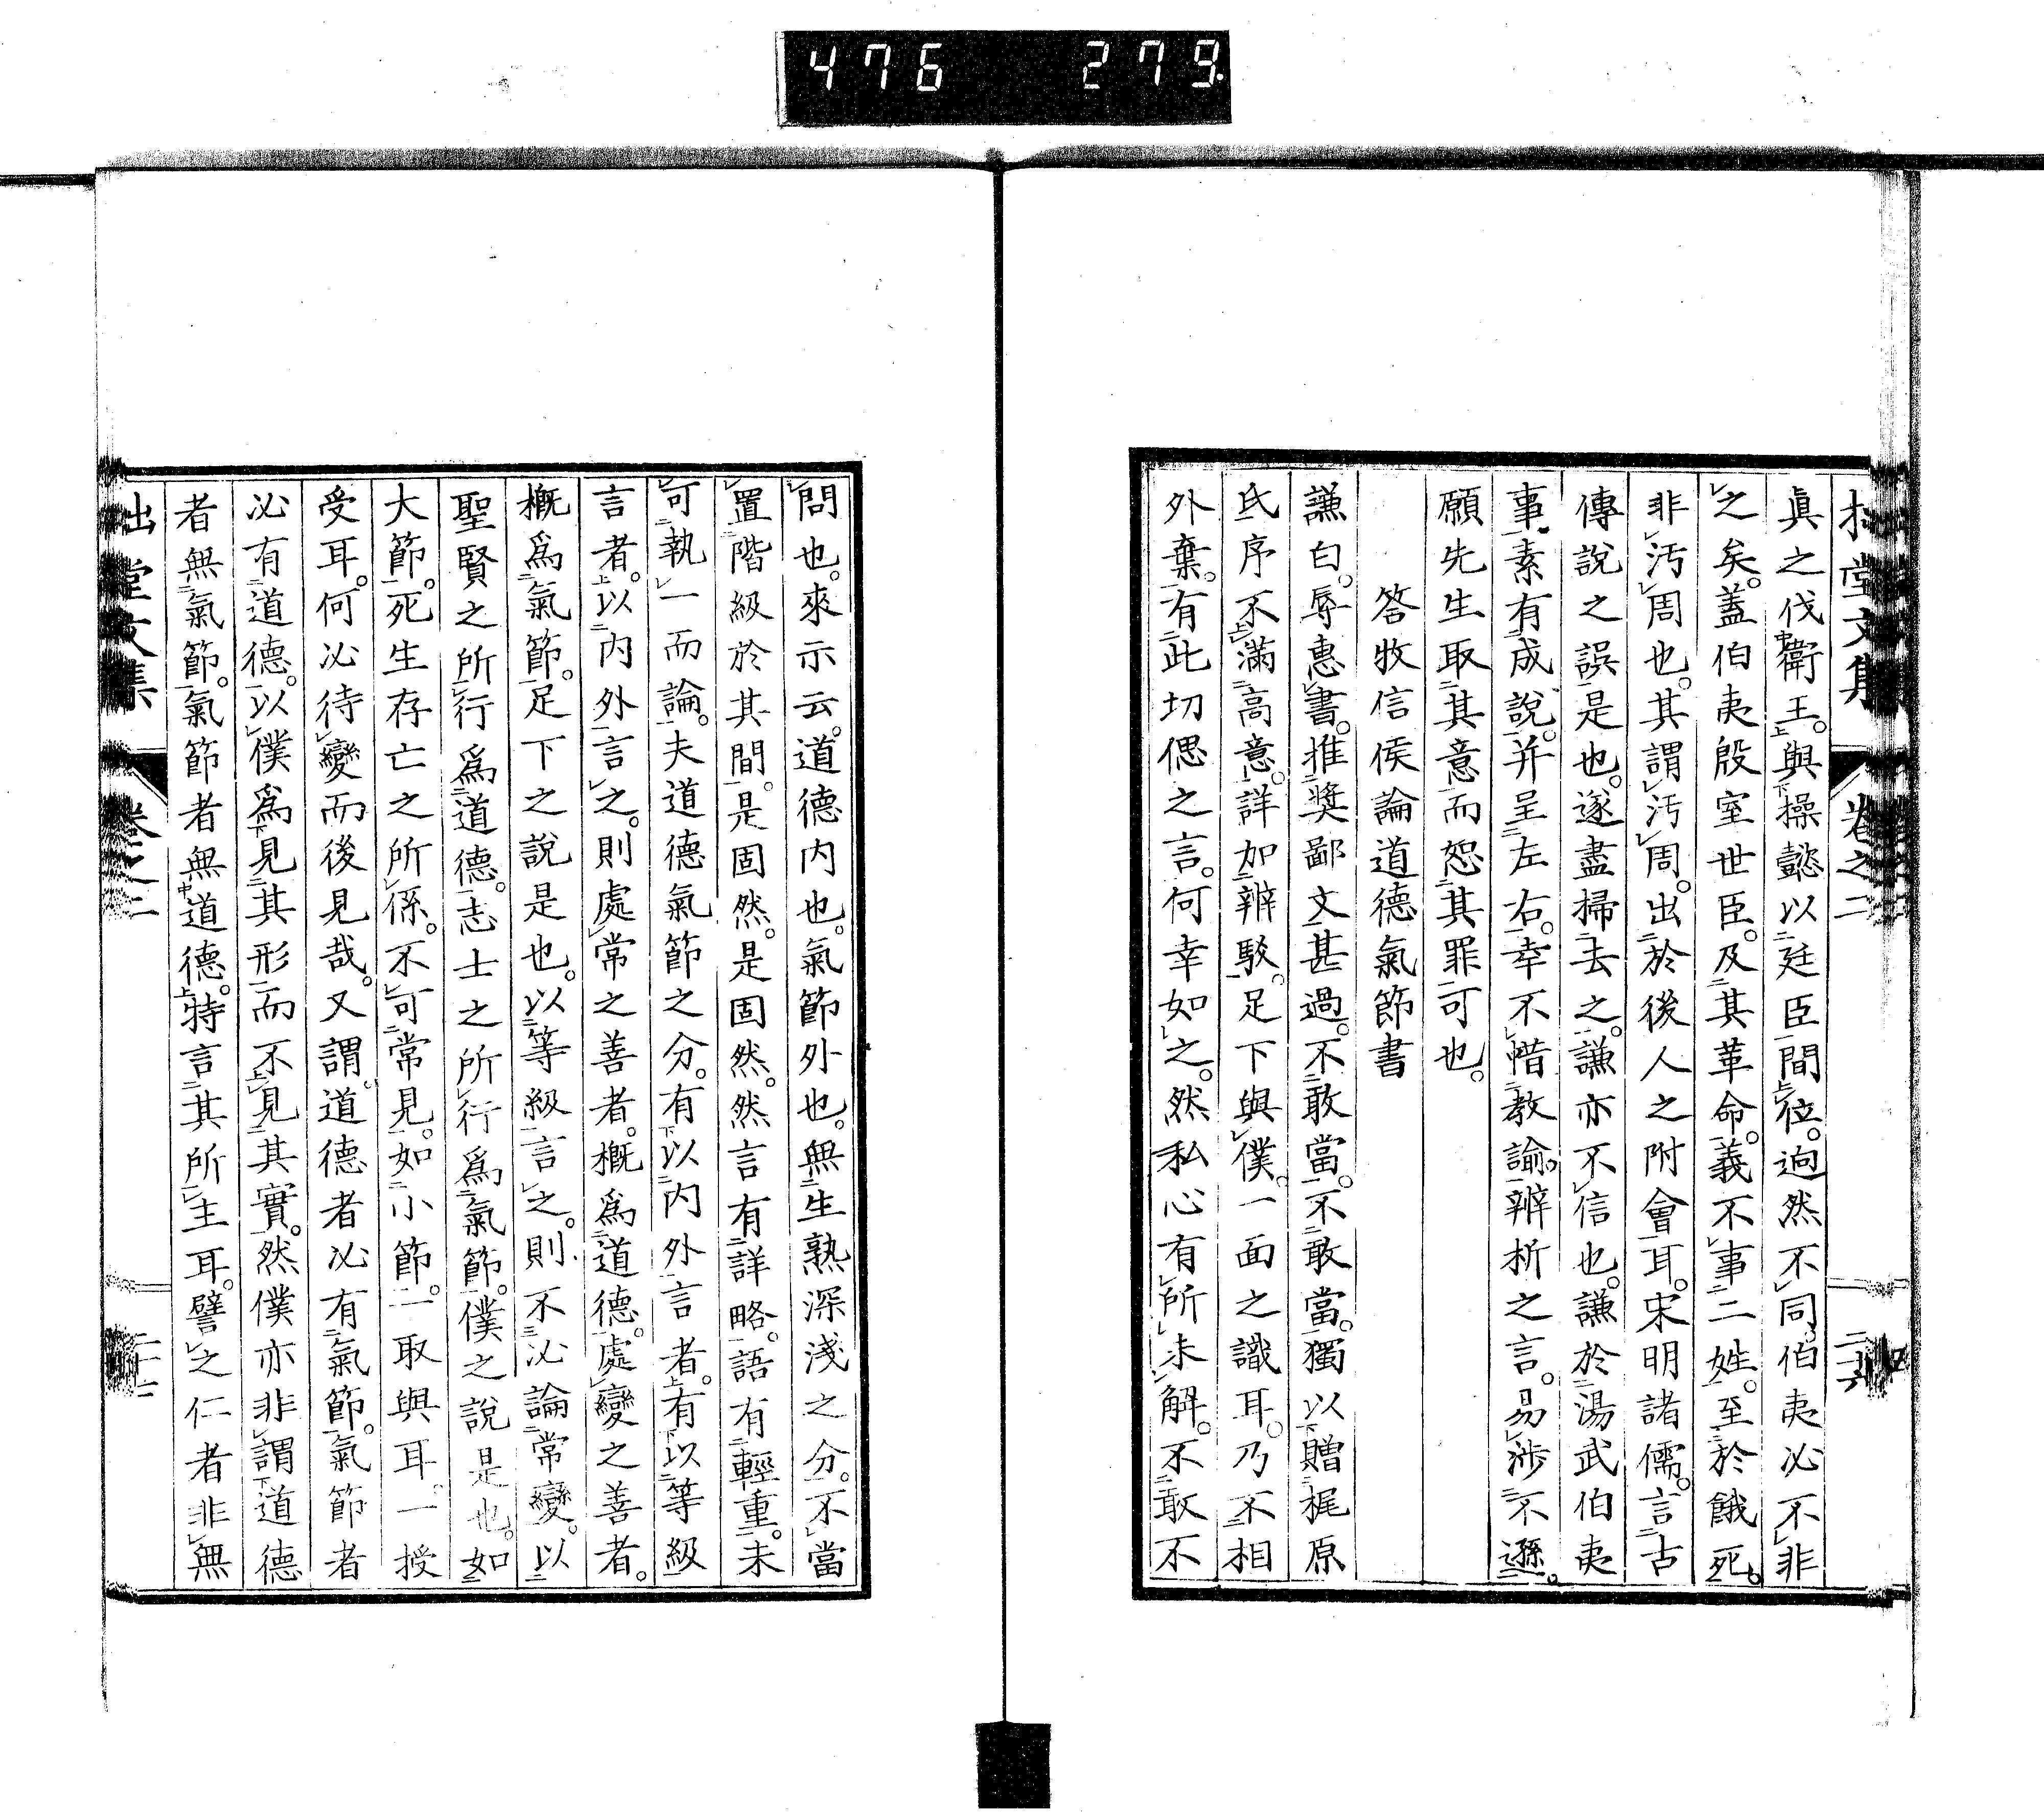 476 279
拙堂文集 卷之二 二十六
眞之伐衛王。與操懿以廷臣間位。逈然不同伯夷必不非
之矣。蓋伯夷殷室世臣。及其革命。義不事二姓。至於餓死。
非汚周也。其謂汚周。出於後人之附會耳。宋明諸儒。言古
傳說之誤是也。遂盡掃去之。謙亦不信也。謙於湯武伯夷
事。素有成說。并呈左右。幸不惜教諭。辨析之言。易涉不遜。
願先生取其意而恕其罪可也。
答牧信侯論道德氣節書
謙白。辱惠書。推奬鄙文甚過。不敢當。不敢當。獨以贈梶原
氏序不滿高意。詳加辨駁。足下與僕。一面之識耳。乃不相
外棄。有此切偲之言。何幸如之。然私心有所未解。不敢不
問也。來示云。道德内也。氣節外也。無生熟深淺之分。不當
置階級於其間。是固然。是固然。然言有詳略。語有輕重。未
可執一而論。夫道德氣節之分。有以内外言者。有以等級
言者。以内外言之。則處常之善者。概爲道德。處變之善者。
概爲氣節。足下之說是也。以等級言之。則不必論常變。以
聖賢之所行爲道德。志士之所行爲氣節。僕之說是也。如
大節。死生存亡之所係。不可常見。如小節。一取與耳。一授
受耳。何必待變而後見哉。又謂。道德者必有氣節。氣節者
必有道德。以僕爲見其形而不見其實。然僕亦非謂道德
者無氣節。氣節者無道德。特言其所主耳。譬之仁者非無
拙堂文集 卷之二 二十七